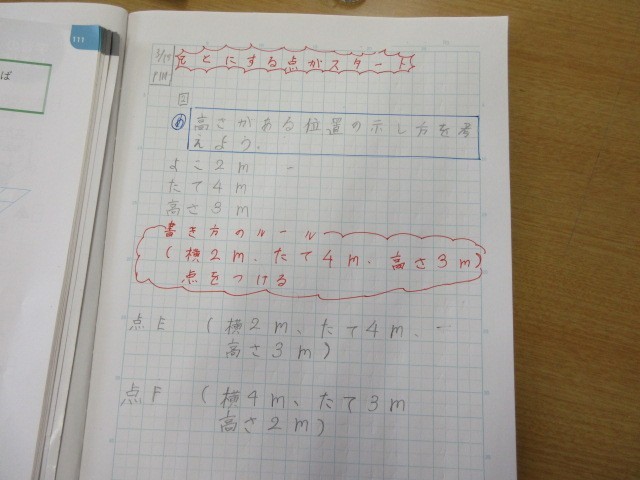 111
ば
もとにする点がスタート
PM
め 高さがある位置の示し方を考
えよう.
よこ2m
たて4m
高さ3m
書き方のルール
(横2m、たて4m、高さ3m)
点をつける
点E (横2m、たて4m、
高さ3m)
点F (横4m、たて3m
高さ2m)